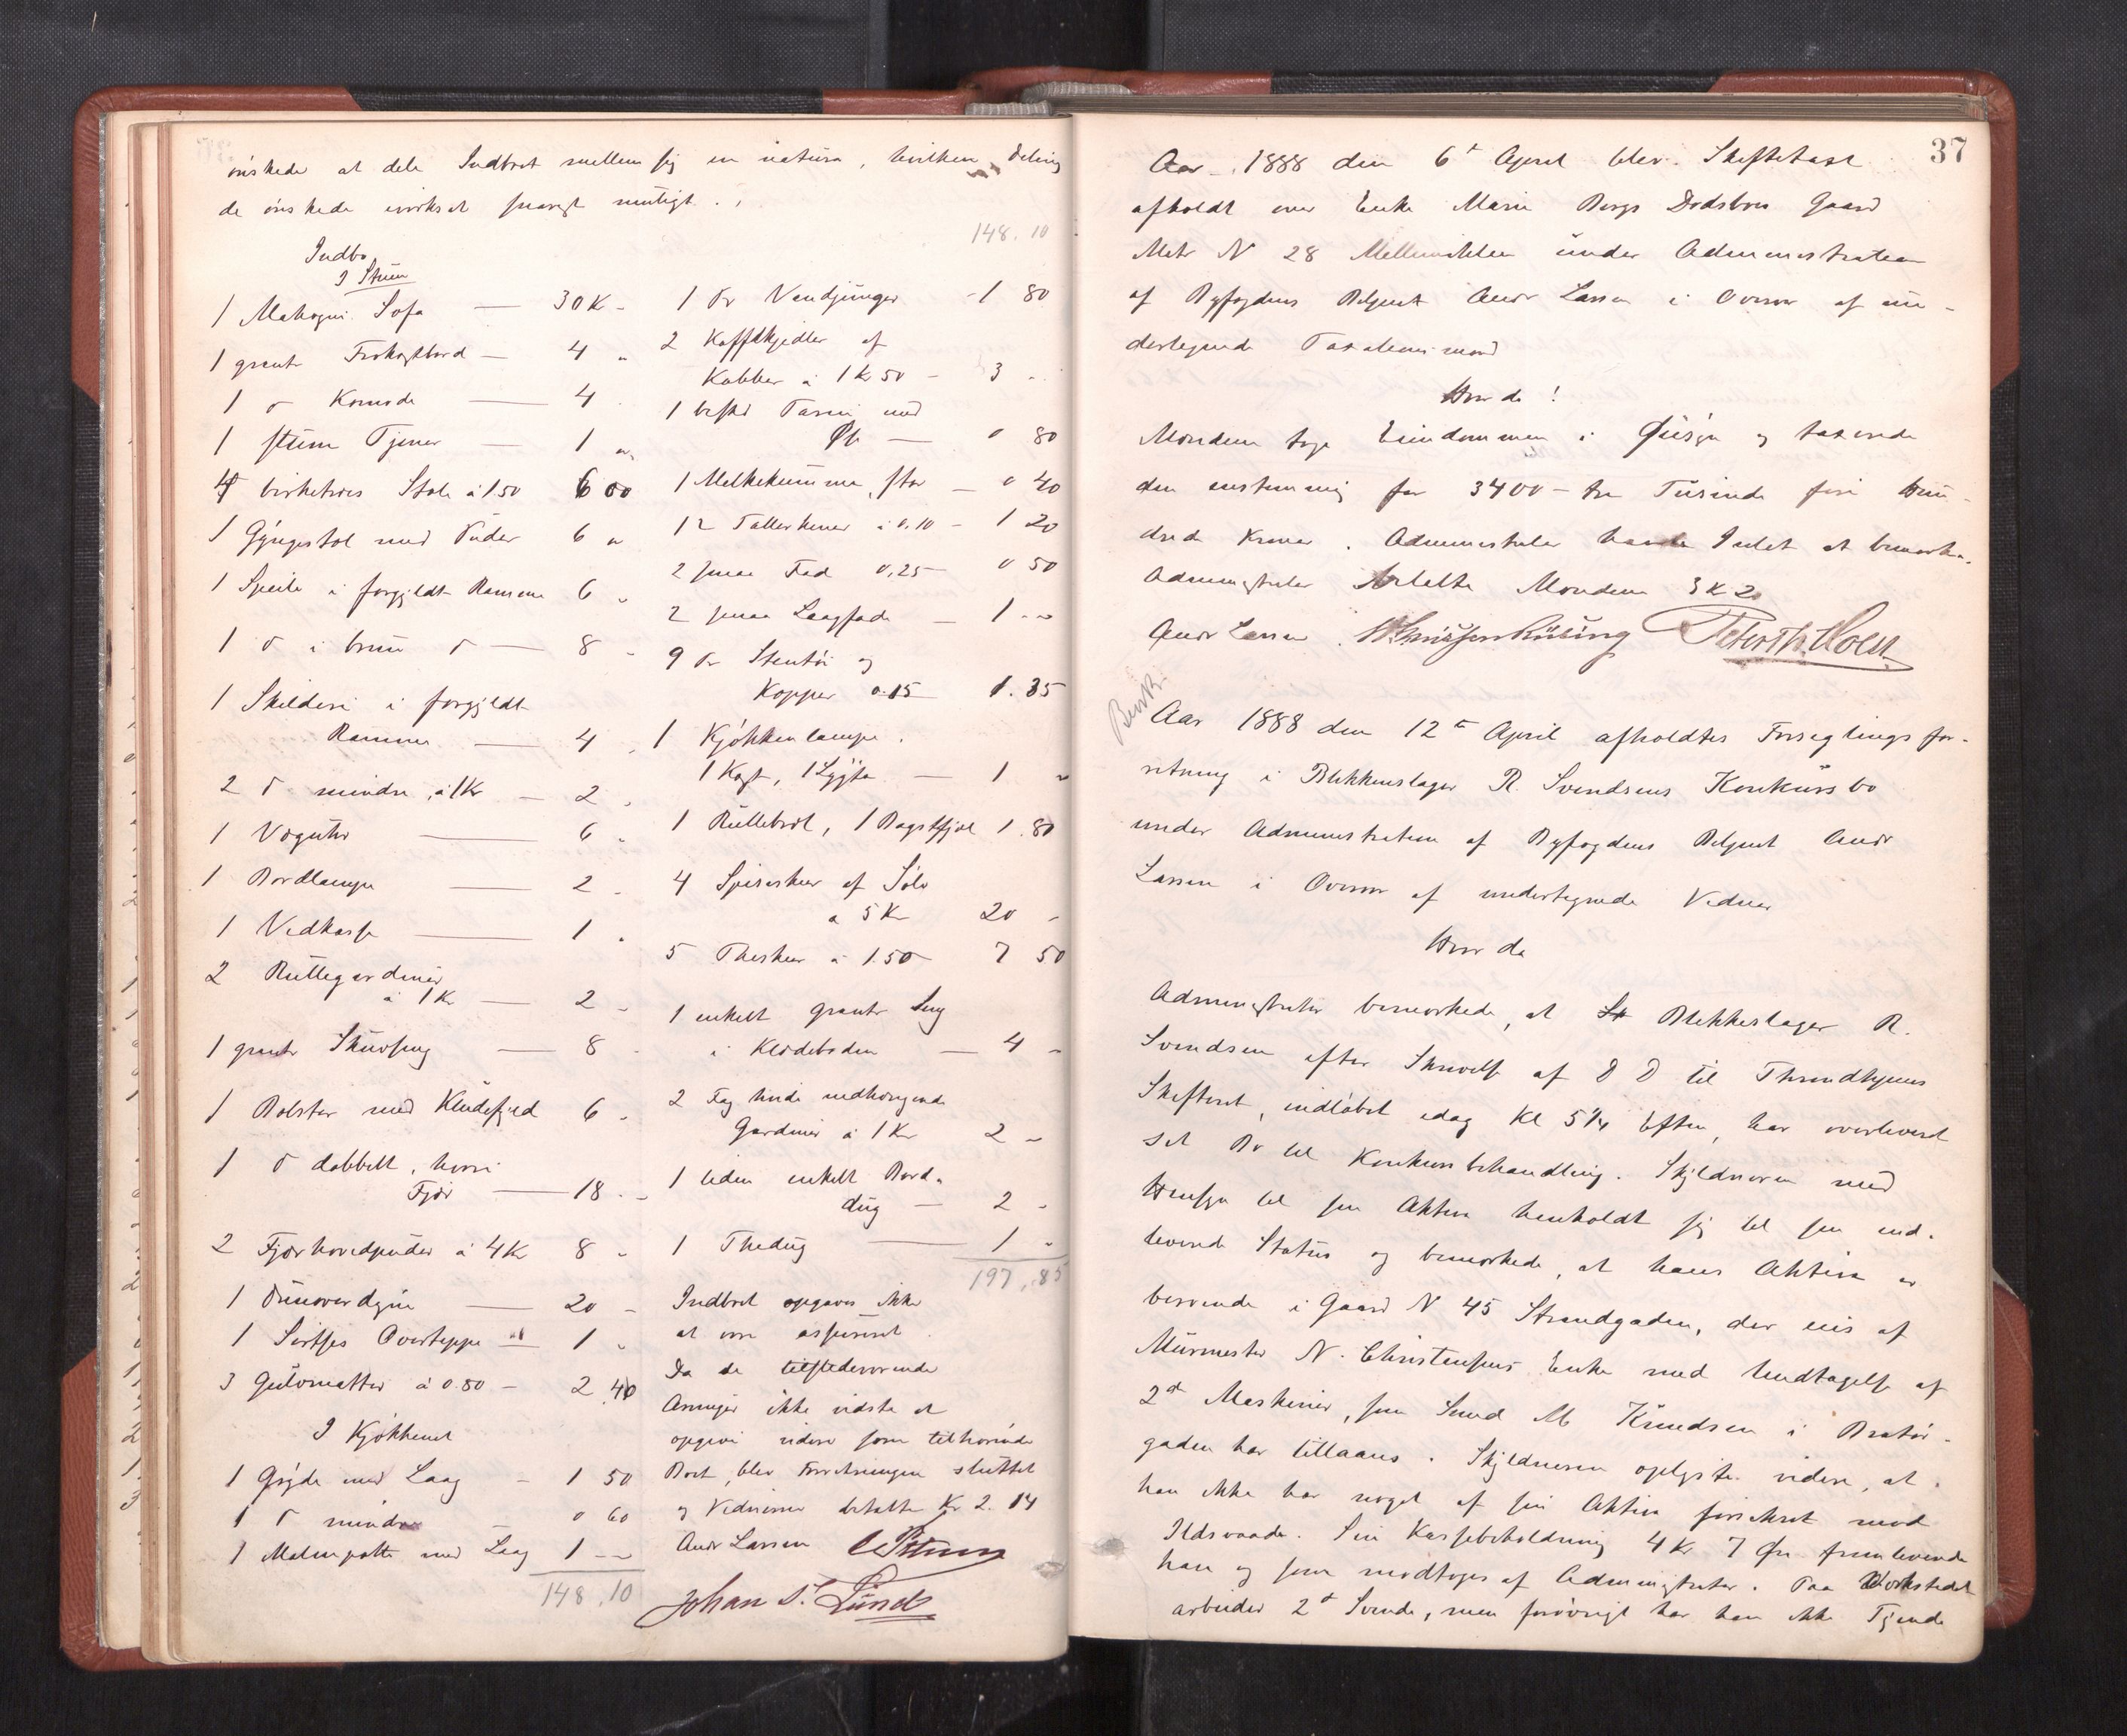 ønskede at dele Indboet mellem sig in natura, hvilken Deling
de ønskede iværksat snarest muligt.
Indbo
I Stuen
1 Mahogni Sofa — 30 K -
1 grant Frokostbord — 4 "
1 d Komode — 4 -
1 stum Tjener — 1 "
4 birketræs Stole à 1.50 6 00
1 Gyngestol med Puder 6 "
1 Speile i forgyldt Ramme 6 "
1 d i brun d — 8 -
1 Skilderi i forgyldt
Ramme — 4 -
2 d mindre, à 1 Kr — 2 -
1 Væguhr — 6 -
1 Bordlampe — 2 -
1 Vedkasse — 1 -
2 Rullegardiner
à 1 Kr — 2 -
1 grant Skuvseng — 8 -
1 Bolster med Kludefjed 6 -
1 d dobbelt, 
Fjær — 18 -
2 Fjærhovedpuder à 4 Kr 8 -
1 Dunoverdyne — 20 -
1 Sirtses Overteppe — 1 -
3 Gulvmatter à 0.80 - 2.40
I Kjøkkenet
1 Gryde med Laag - 1 50
1 d mindre 0 60
1 Malmpotte med Laag 1 -
148,10
148,10
1 Par Vandjunger - 1 80
2 Kaffekjedler af
Kobber à 1 Kr 50 - 3 -
1 Tarin med
— 0 80
1 Melkekumme, stor — 0 40
12 Tallerkener à 0.10 - 1 20
2 smaa Fad 0,25 - 0 50
2 smaa Laagfade — 1 -
9 Par Stentøi og
Kopper 0.15 1.35
1 Kjøkkenlampe,
1 Kost, 1 Lygte — 1 "
1 Rullebræt, 1 Bagstfjæl 1.80
4 Spiseskeer af Sølv
à 5 Kr 20 -
5 Theskeer à 1.50 7 50
1 enkelt grant Seng
i Klædeboden — 4 -
2 Fag hvide nedhængende
Gardiner à 1 Kr 2 -
1 liden enkelt Bord-
dug — 2 -
1 Thedug — 1 -
197,85
Indboet opgaves ikke
at være assureret.
Da de tilstedeværende
Arvinger ikke vidste at
opgive videre som tilhørende
Boet, blev Forretningen sluttet
og Vidnerne betalte Kr 2.14
Andr Larsen
Johan S. Lund
37
Aar 1888 den 6te April blev Skiftetaxt
afholdt over Enke Marie Bergs Dødsboes Gaard
Matr N 28 Mellemilden under Administration
af Byfogdens Betjent Andr Larsen i Overvær af un-
dertegnede Taxationsmænd
Hvor da!
Mændene toge Eiendommen i Øiesyn og taxerede
den enstemmig for 3400 - tre Tusinde fire Hun-
drede Kroner. Administrator havde Intet at bemærke.
Administrator betalte Mændene 3 K 20
Andr Larsen. Peter Th. Holst
Aar 1888 den 12te April afholdtes Forseglingsfor-
retning i Blikkenslager R. Svendsens Konkursbo
under Administration af Byfogdens Betjent Andr
Larsen i Overvær af undertegnede Vidner
Hvor da
Administrator bemærkede, at Blikkeslager R.
Svendsen efter Skrivelse af D D til Throndhjems
Skifteret, indløbet idag Kl 5 1/4 Eftm, har overleveret
sit Bo til Konkursbehandling. Skyldneren med
Hensyn til sin Aktiva henholdt sig til sin ind-
leverede Status og bemærkede, at hans Aktiva er
beroende i Gaard N 45 Strandgaden, der eies af
Murmester N. Christensens Enke med Undtagelse af
2de Maskiner, som Smed M Knudsen i Bratør-
gaden har tillaans. Skyldneren oplyste videre, at
han ikke har noget af sin Aktiva forsikret mod
Ildsvaade. Sin Kassebeholdning 4 Kr 7 Øre fremleverede
han og som modtoges af Administrator. Paa Værkstedet
arbeider 2de Svende, men forøvrigt har han ikke Tjende